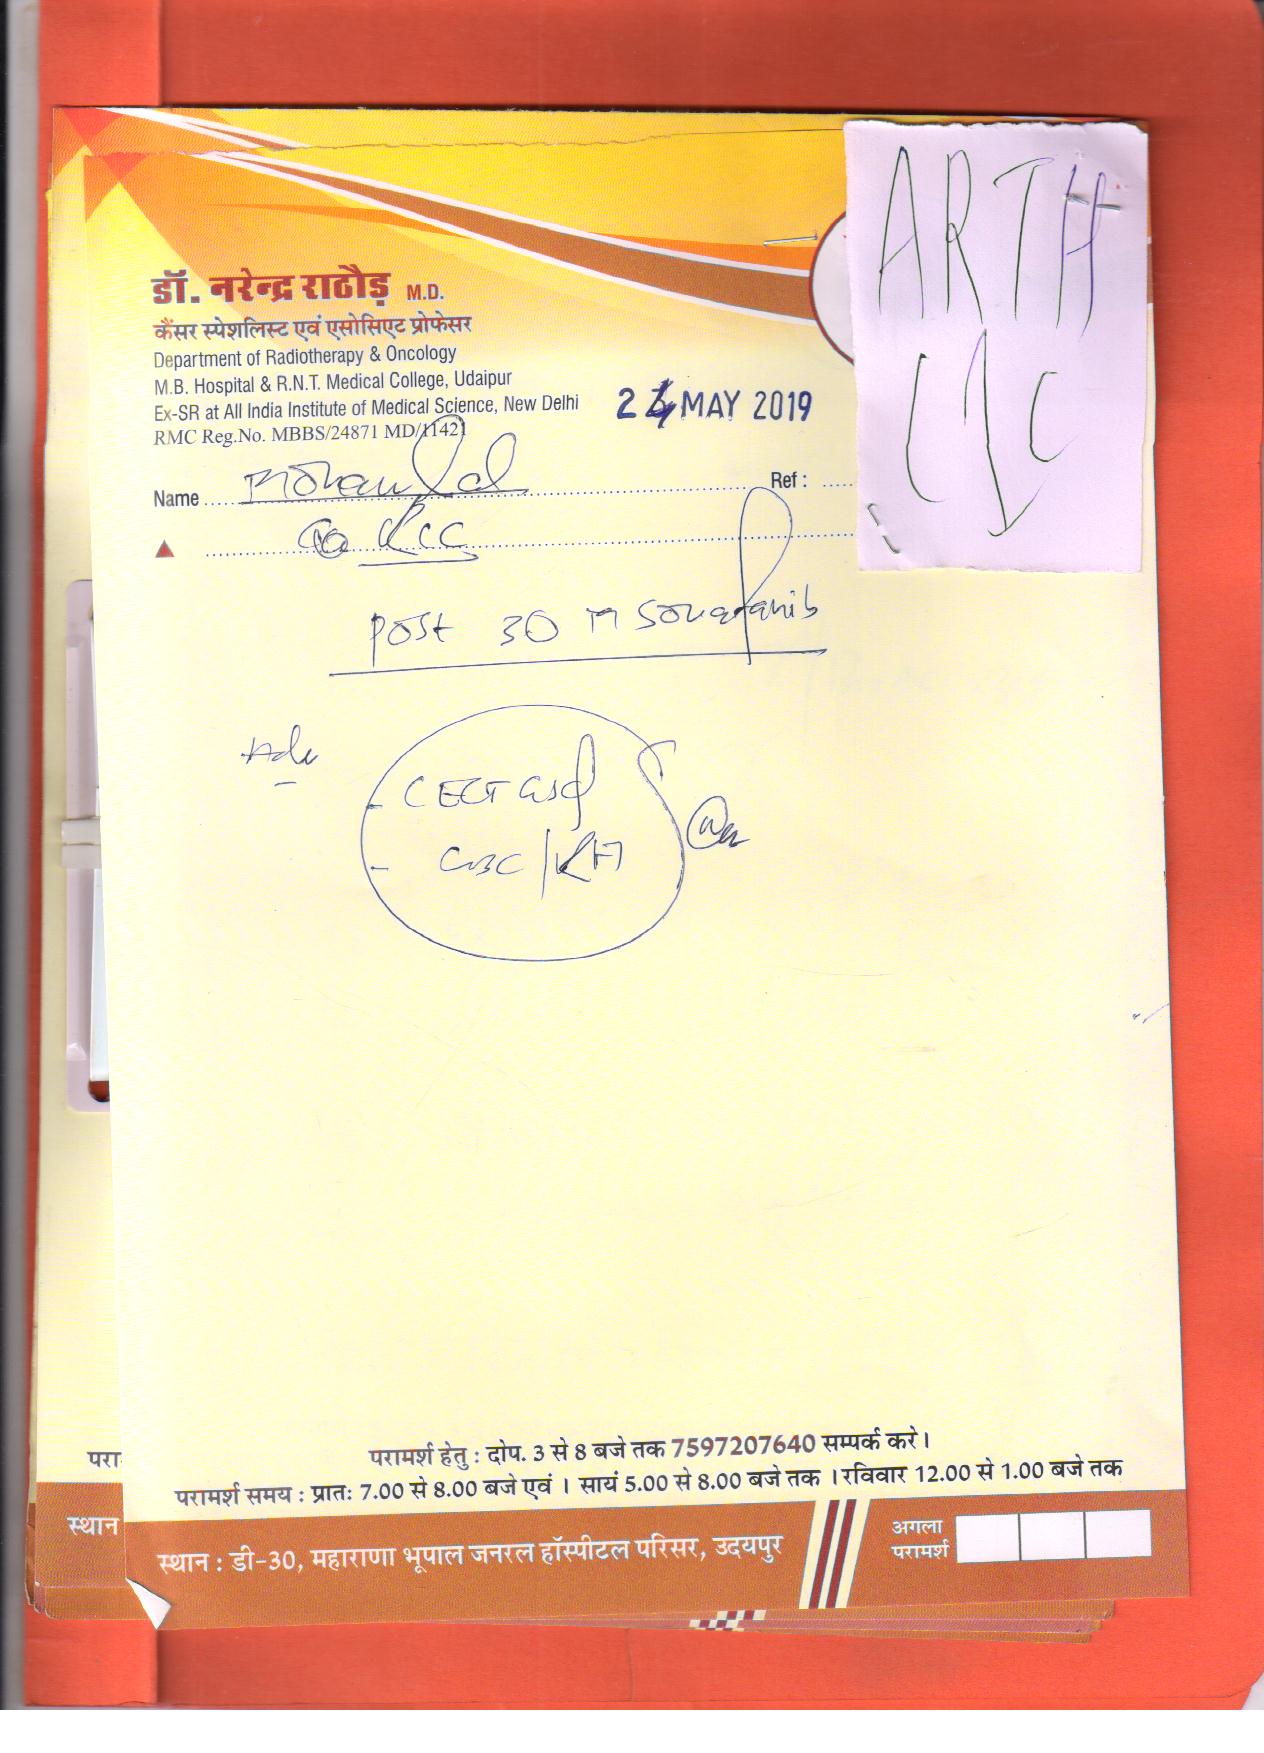 डॉ. नरेन्द्र राठौड़ M.D.
कैंसर स्पेशलिस्ट एवं एसोसिएट प्रोफेसर
Department of Radiotherapy & Oncology
M.B. Hospital & R.N.T. Medical College, Udaipur
Ex-SR at All India Institute of Medical Science, New Delhi
RMC Reg.No. MBBS/24871 MD/11421
24 MAY 2019
ARTH
Name Mohanlal Ref :
RCC
Post 30 M Sorafanib
Adv
- CECT
- CBC / RFT
परामर्श हेतु : दोप. 3 से 8 बजे तक 7597207640 सम्पर्क करे।
परामर्श समय : प्रातः 7.00 से 8.00 बजे एवं । सायं 5.00 से 8.00 बजे तक । रविवार 12.00 से 1.00 बजे तक
स्थान : डी-30, महाराणा भूपाल जनरल हॉस्पीटल परिसर, उदयपुर
अगला
परामर्श
परा
स्थान